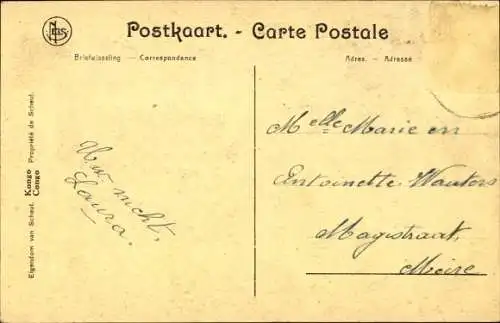 Postkaart. - Carte Postale
Briefwisseling — Correspondance
Adres. — Adresse
Eigendom van Scheut. Kongo Propriété de Scheut.
Congo
nicht.
Laura.
Melle Marie en
Antoinette Wauters
Magistraat,